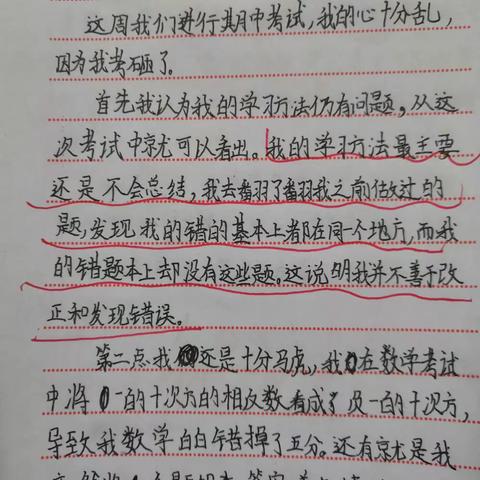 这周我们进行其月中考试,我的心十分乱,
因为我考砸了。
首先我认为我的学习方法仍有问题。从这
次考试中就可以看出。我的学习方法最主要
还是不会总结,我去翻了翻我之前做过的
题,发现我的错的基本上都在同一个地方,而我
的错题本上却没有这些题。这说明我并不善于改
正和发现错误。
第二点我还是十分马虎,我在数学考试
中将一的十次方的相反数看成了负一的十次方,
导致我数学白白错掉了五分。还有就是我